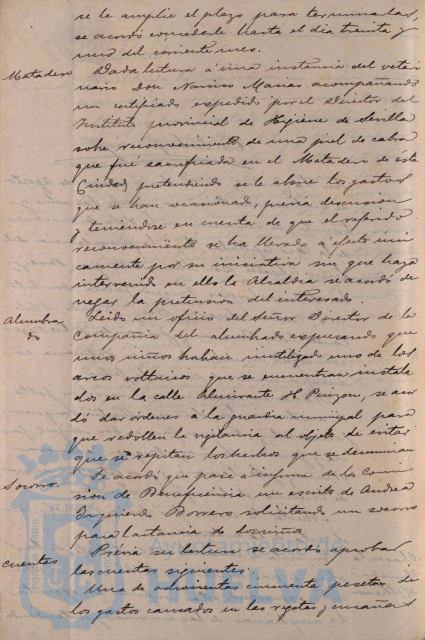 se le amplie el plazo para terminarlas,
se acordó concederle hasta el dia treinta y
uno del corriente mes.
Matadero
Dada lectura á una instancia del veteri
nario Don Narciso Marias acompañando
un certificado expedido por el Director del
Instituto provincial de Higiene de Sevilla
sobre reconocimiento de una piel de cabra
que fué sacrificada en el Matadero de esta
Ciudad pretendiendo se le abone los gastos
que se han ocasionado, prévia discusion
y teniendose en cuenta de que el referido
reconocimiento se ha llevado a efecto uni
camente por su iniciativa sin que haya
intervenido en ello la Alcaldia se acordó de
negar la pretension del interesado.
Alumbra
do
Leido un oficio del Señor Director de la
Compañia del alumbrado expresando que
unos niños habian inutilizado uno de los
arcos voltaicos que se encuentran instala
dos en la calle Almirante H. Pinzon, se acor
dó dar ordenes á la guardia municipal para
que redoblen la vigilancia al objeto de evitar
que se repitan los hechos que se denuncian
Socorro
Se acordó que pase á informe de la Comi
sion de Beneficencia un escrito de Andrea
Izquierdo Borrero solicitando un socorro
para lactancia de dos niños
cuentas
Prévia su lectura se acordó aprobar
las cuentas siguientes:
Una de doscientas cincuenta pesetas de
los gastos causados en las regatas y cucañas
HUELVA